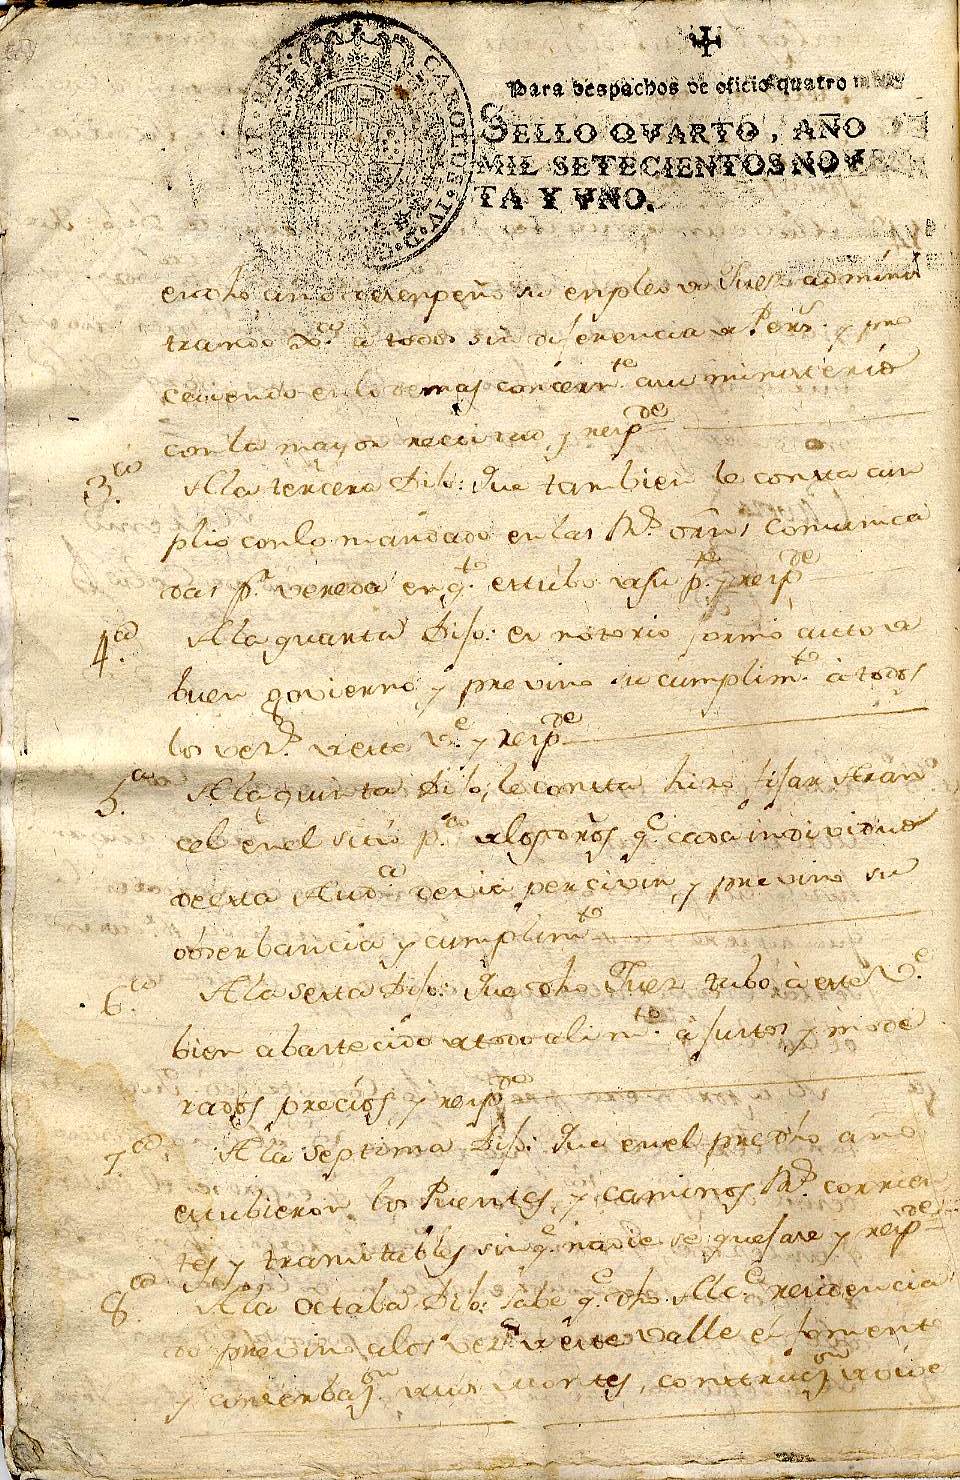 CAROLUS · IV · D · G ·
AR · REX ·
Para despachos de oficio quatro mrs
SELLO QVARTO, AÑO DE
MIL SETECIENTOS NOVEN
TA Y VNO.
en dho año desenpeño su enpleo de Juez adminis
trando Xª a todos sin diferencia de Persˢ y pro
cediendo en lo demas concernᵗᵉ a su ministério
con la mayor rectitud, y respᵈᵉ
3ᵃ A la tercera Dijo: Que tambien le consta cun
plio con lo mandado en las Rˢ orñs comunica
das pʳ vereda en qᵗᵒ estubo de su pᵗᵉ y respᵈᵉ
4ᵃ A la quarta Dijo: es notorio formó auto de
buen govierno y previno su cumplimᵗᵒ à todos
los vezˢ de este Vᵉ y respᵈᵉ
5ᵃ A la quinta Dijo, le consta hizo fijar Aran
cel en el sitio pᶜᵒ de los dros̃ qᵉ cada individuo
de esta Audᵃ devia percivir, y previno su
obserbancia y cumplimᵗᵒ
6ᵃ A la sexta Dijo: Que dho Juez tubo à este Vᵉ
bien abastecido de todo alimᵗᵒ à justos y mode
rados precios y respᵈᵉ
7ᵃ A la séptima Dijo: Que en el predho año
estubieron los Puentes, y caminos Rˢ corrien
tes y transitables sin qᵉ nadie se quejase y respᵈᵉ
8ᵃ A la octaba Dijo: save qᵉ dho Alcᵉ residencia
do previno a los vezˢ de este valle el foment
y conserbazᵒⁿ de sus Montes, construczᵒⁿ de vive